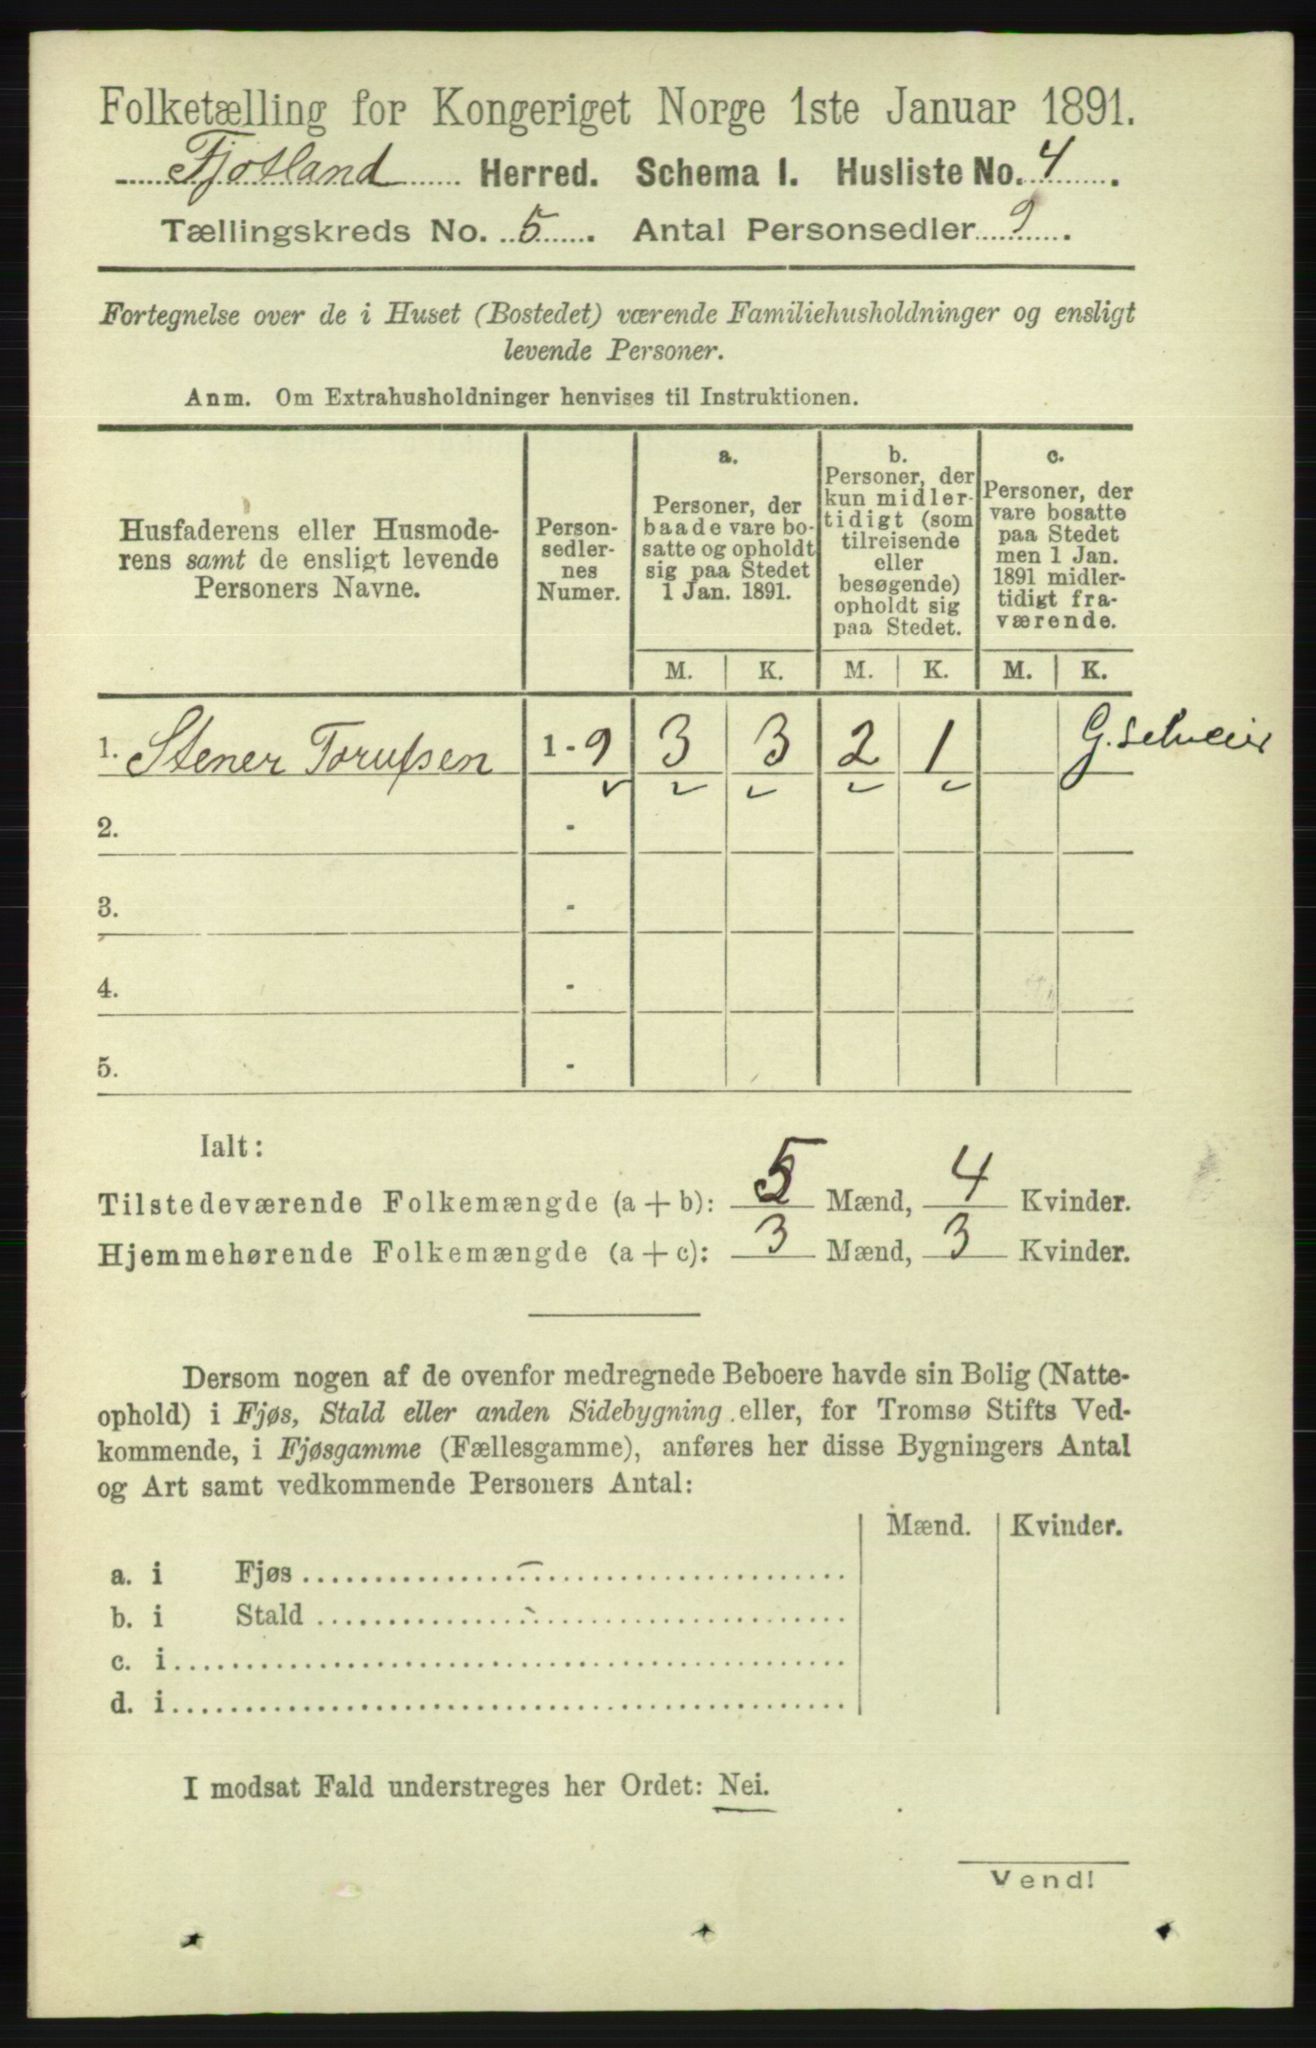 Folketælling for Kongeriget Norge 1ste Januar 1891.
Fjotland Herred. Schema I. Husliste No. 4.
Tællingskreds No. 5. Antal Personsedler 9.
Fortegnelse over de i Huset (Bostedet) værende Familiehusholdninger og ensligt
levende Personer.
Anm. Om Extrahusholdninger henvises til Instruktionen.
Husfaderens eller Husmode-
rens samt de ensligt levende
Personers Navne.
Person-
sedler-
nes
Numer.
a.
Personer, der
baade vare bo-
satte og opholdt
sig paa Stedet
1 Jan. 1891.
b.
Personer, der
kun midler-
tidigt (som
tilreisende
eller
besøgende)
opholdt sig
paa Stedet.
c.
Personer, der
vare bosatte
paa Stedet
men 1 Jan.
1891 midler-
tidigt fra-
værende.
M. K. M. K. M. K.
1. Stener Torufsen 1-9 3 3 2 1 G. selveier
2. -
3. -
4. -
5. -
Ialt:
Tilstedeværende Folkemængde (a + b): 5 Mænd, 4 Kvinder.
Hjemmehørende Folkemængde (a + c): 3 Mænd, 3 Kvinder.
Dersom nogen af de ovenfor medregnede Beboere havde sin Bolig (Natte-
ophold) i Fjøs, Stald eller anden Sidebygning eller, for Tromsø Stifts Ved-
kommende, i Fjøsgamme (Fællesgamme), anføres her disse Bygningers Antal
og Art samt vedkommende Personers Antal:
Mænd. Kvinder.
a. i Fjøs
b. i Stald
c. i
d. i
I modsat Fald understreges her Ordet: Nei.
Vend!